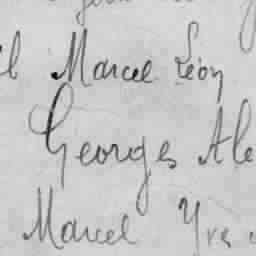 Marcel Léon
Georges Ale
Marcel Yves